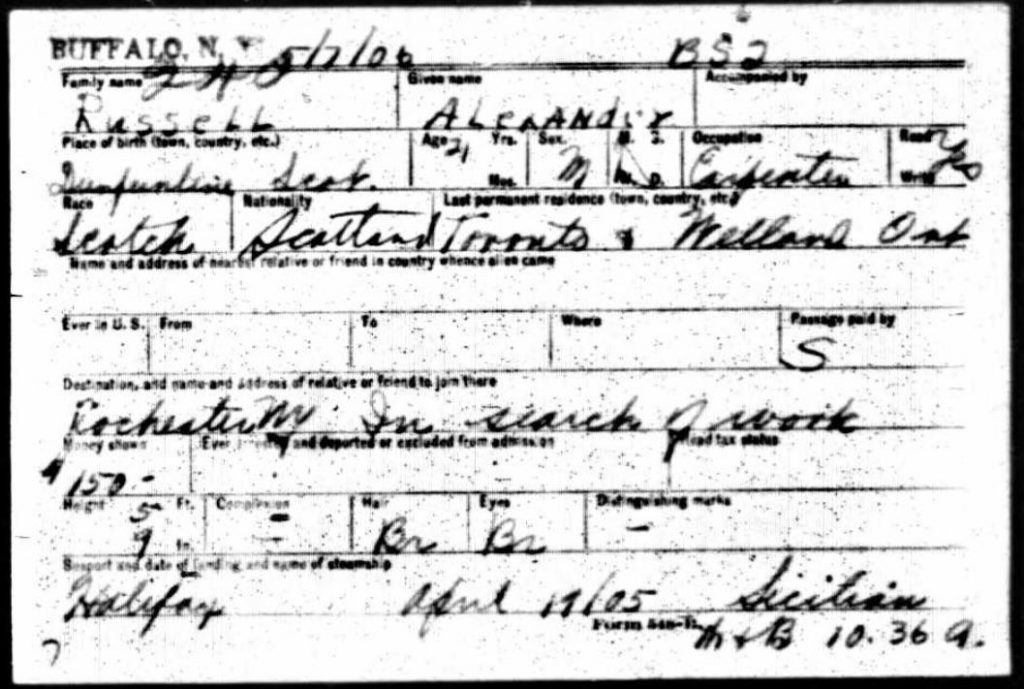 BUFFALO, N. Y 5/7/06 BS2
Family name Given name Accompanied by
Russell Alexander
Place of birth (town, country, etc.) Age 21 Yrs. Mos. Sex M M. S. W. D. Occupation Read Yes Write
Dunfermline Scot. Carpenter
Race Nationality Last permanent residence (town, country, etc.)
Scotch Scotland Toronto & Welland Ont
Name and address of nearest relative or friend in country whence alien came
Ever in U. S. From To Where Passage paid by
S
Destination, and name and address of relative or friend to join there
Rochester NY In search of work
Money shown Ever and deported or excluded from admission Head tax status
$150-
Height 5 Ft. Complexion Hair Eyes Distinguishing marks
9 In. - Br Br -
Seaport and date of landing and name of steamship
Halifax April 19/05 Sicilian
Form 548-B.
M & B 10.36 a.